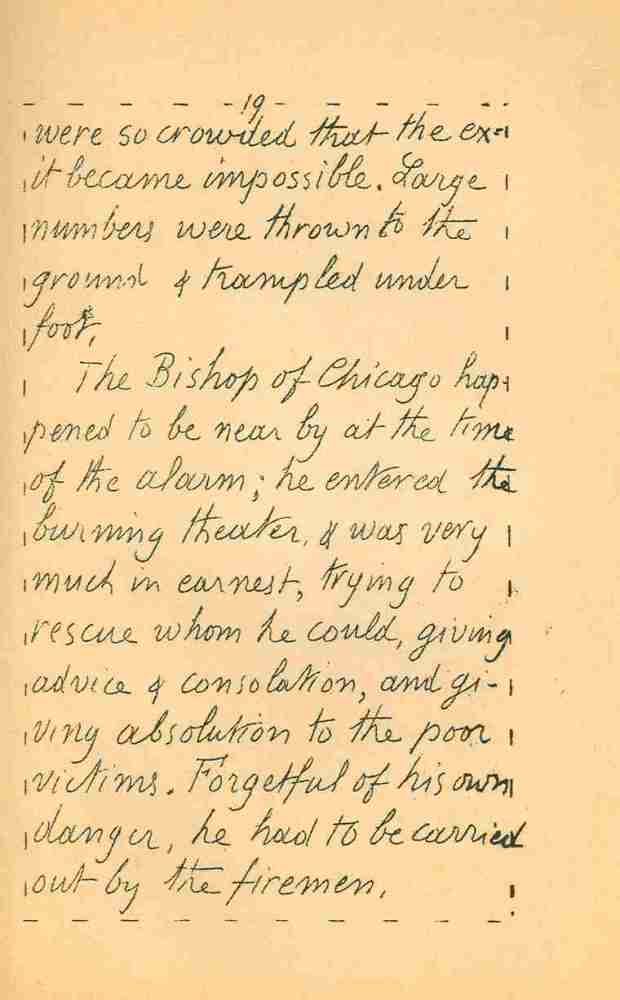 19
were so crowded that the ex-
it became impossible. Large
numbers were thrown to the
ground & trampled under
foot.
The Bishop of Chicago hap-
pened to be near by at the time
of the alarm; he entered the
burning theater, & was very
much in earnest, trying to
rescue whom he could, giving
advice & consolation, and gi-
ving absolution to the poor
victims. Forgetful of his own
danger, he had to be carried
out by the firemen.